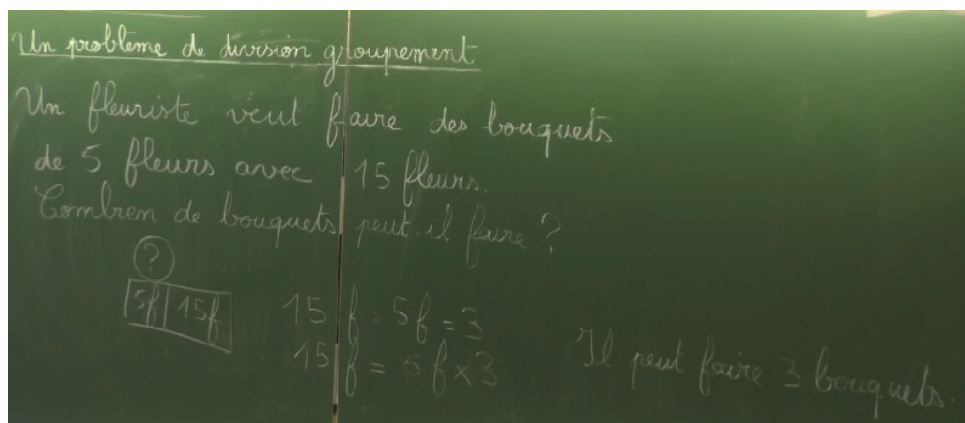 Un problème de division groupement
Un fleuriste veut faire des bouquets
de 5 fleurs avec 15 fleurs.
Combien de bouquets peut-il faire ?
?
5f 15f
15 f : 5f = 3
15 f = 5 f × 3
Il peut faire 3 bouquets.